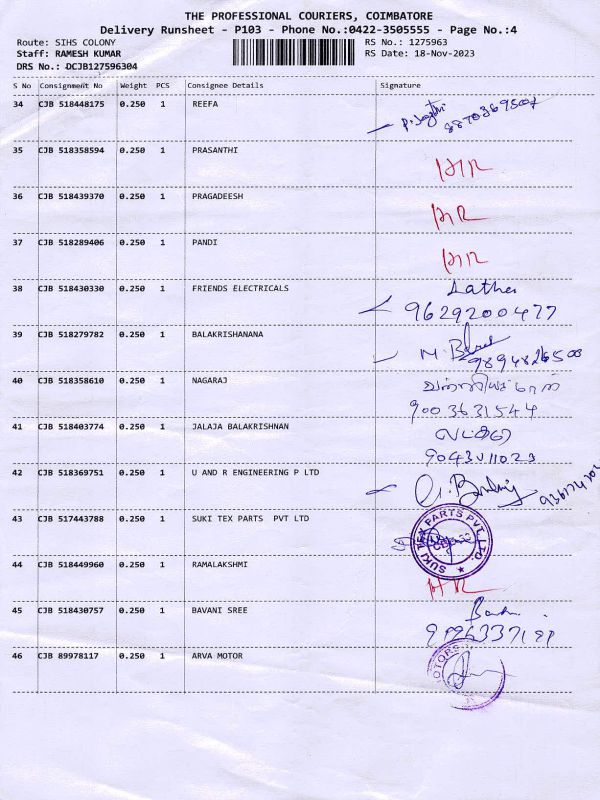 THE PROFESSIONAL COURIERS, COIMBATORE
Delivery Runsheet - P103 - Phone No.:0422-3505555 - Page No.:4
Route: SIHS COLONY
RS No.: 1275963
Staff: RAMESH KUMAR
RS Date: 18-Nov-2023
DRS No.: DCJB127596304
S No Consignment No Weight PCS Consignee Details Signature
34 CJB 518448175 0.250 1 REEFA
35 CJB 518358594 0.250 1 PRASANTHI
36 CJB 518439370 0.250 1 PRAGADEESH
37 CJB 518289406 0.250 1 PANDI
38 CJB 518430330 0.250 1 FRIENDS ELECTRICALS Latha
9629200477
39 CJB 518279782 0.250 1 BALAKRISHANANA
9894826500
40 CJB 518358610 0.250 1 NAGARAJ
9003631544
41 CJB 518403774 0.250 1 JALAJA BALAKRISHNAN
9043011023
42 CJB 518369751 0.250 1 U AND R ENGINEERING P LTD
43 CJB 517443788 0.250 1 SUKI TEX PARTS PVT LTD SUKI TEX PARTS PVT. LTD.
44 CJB 518449960 0.250 1 RAMALAKSHMI
45 CJB 518430757 0.250 1 BAVANI SREE
46 CJB 89978117 0.250 1 ARVA MOTOR MOTORS